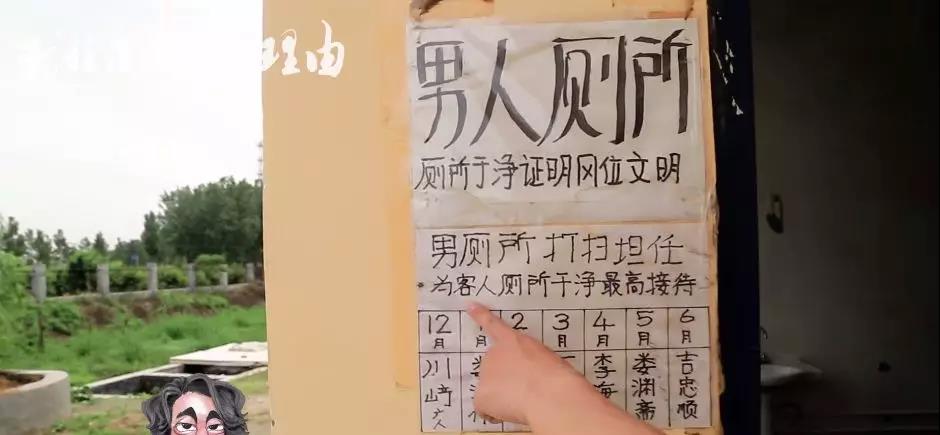 理由
男人厕所
厕所于净证明冈位文明
男厕所打扫担任
为客人厕所于净最高接待
12月 2 3月 4月 5月 6月
川崎大 李海 娄渊斋 吉忠顺